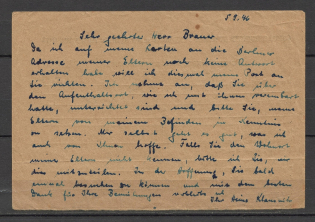 5.9.46
Sehr geehrter Herr Brauer
Da ich auf meine Karten an die Berliner
Adresse meiner Eltern noch keine Antwort
erhalten habe will ich diesmal meine Post an
Sie richten. Ich nehme an, daß Sie über
den Aufenthaltsort, wie ich mit ihnen vereinbart
hatte, unterrichtet sind und bitte Sie, meine
Eltern von meinem Befinden in Kenntnis
zu setzen. Mir selbst geht es gut, was ich
auch von Ihnen hoffe. Falls Sie den Wohnort
meiner Eltern nicht kennen, bitte ich Sie, mir
dies mitzuteilen. In der Hoffnung, Sie bald
einmal besuchen zu können und mit dem besten
Dank für Ihre Bemühungen verbleibe ich
Ihr